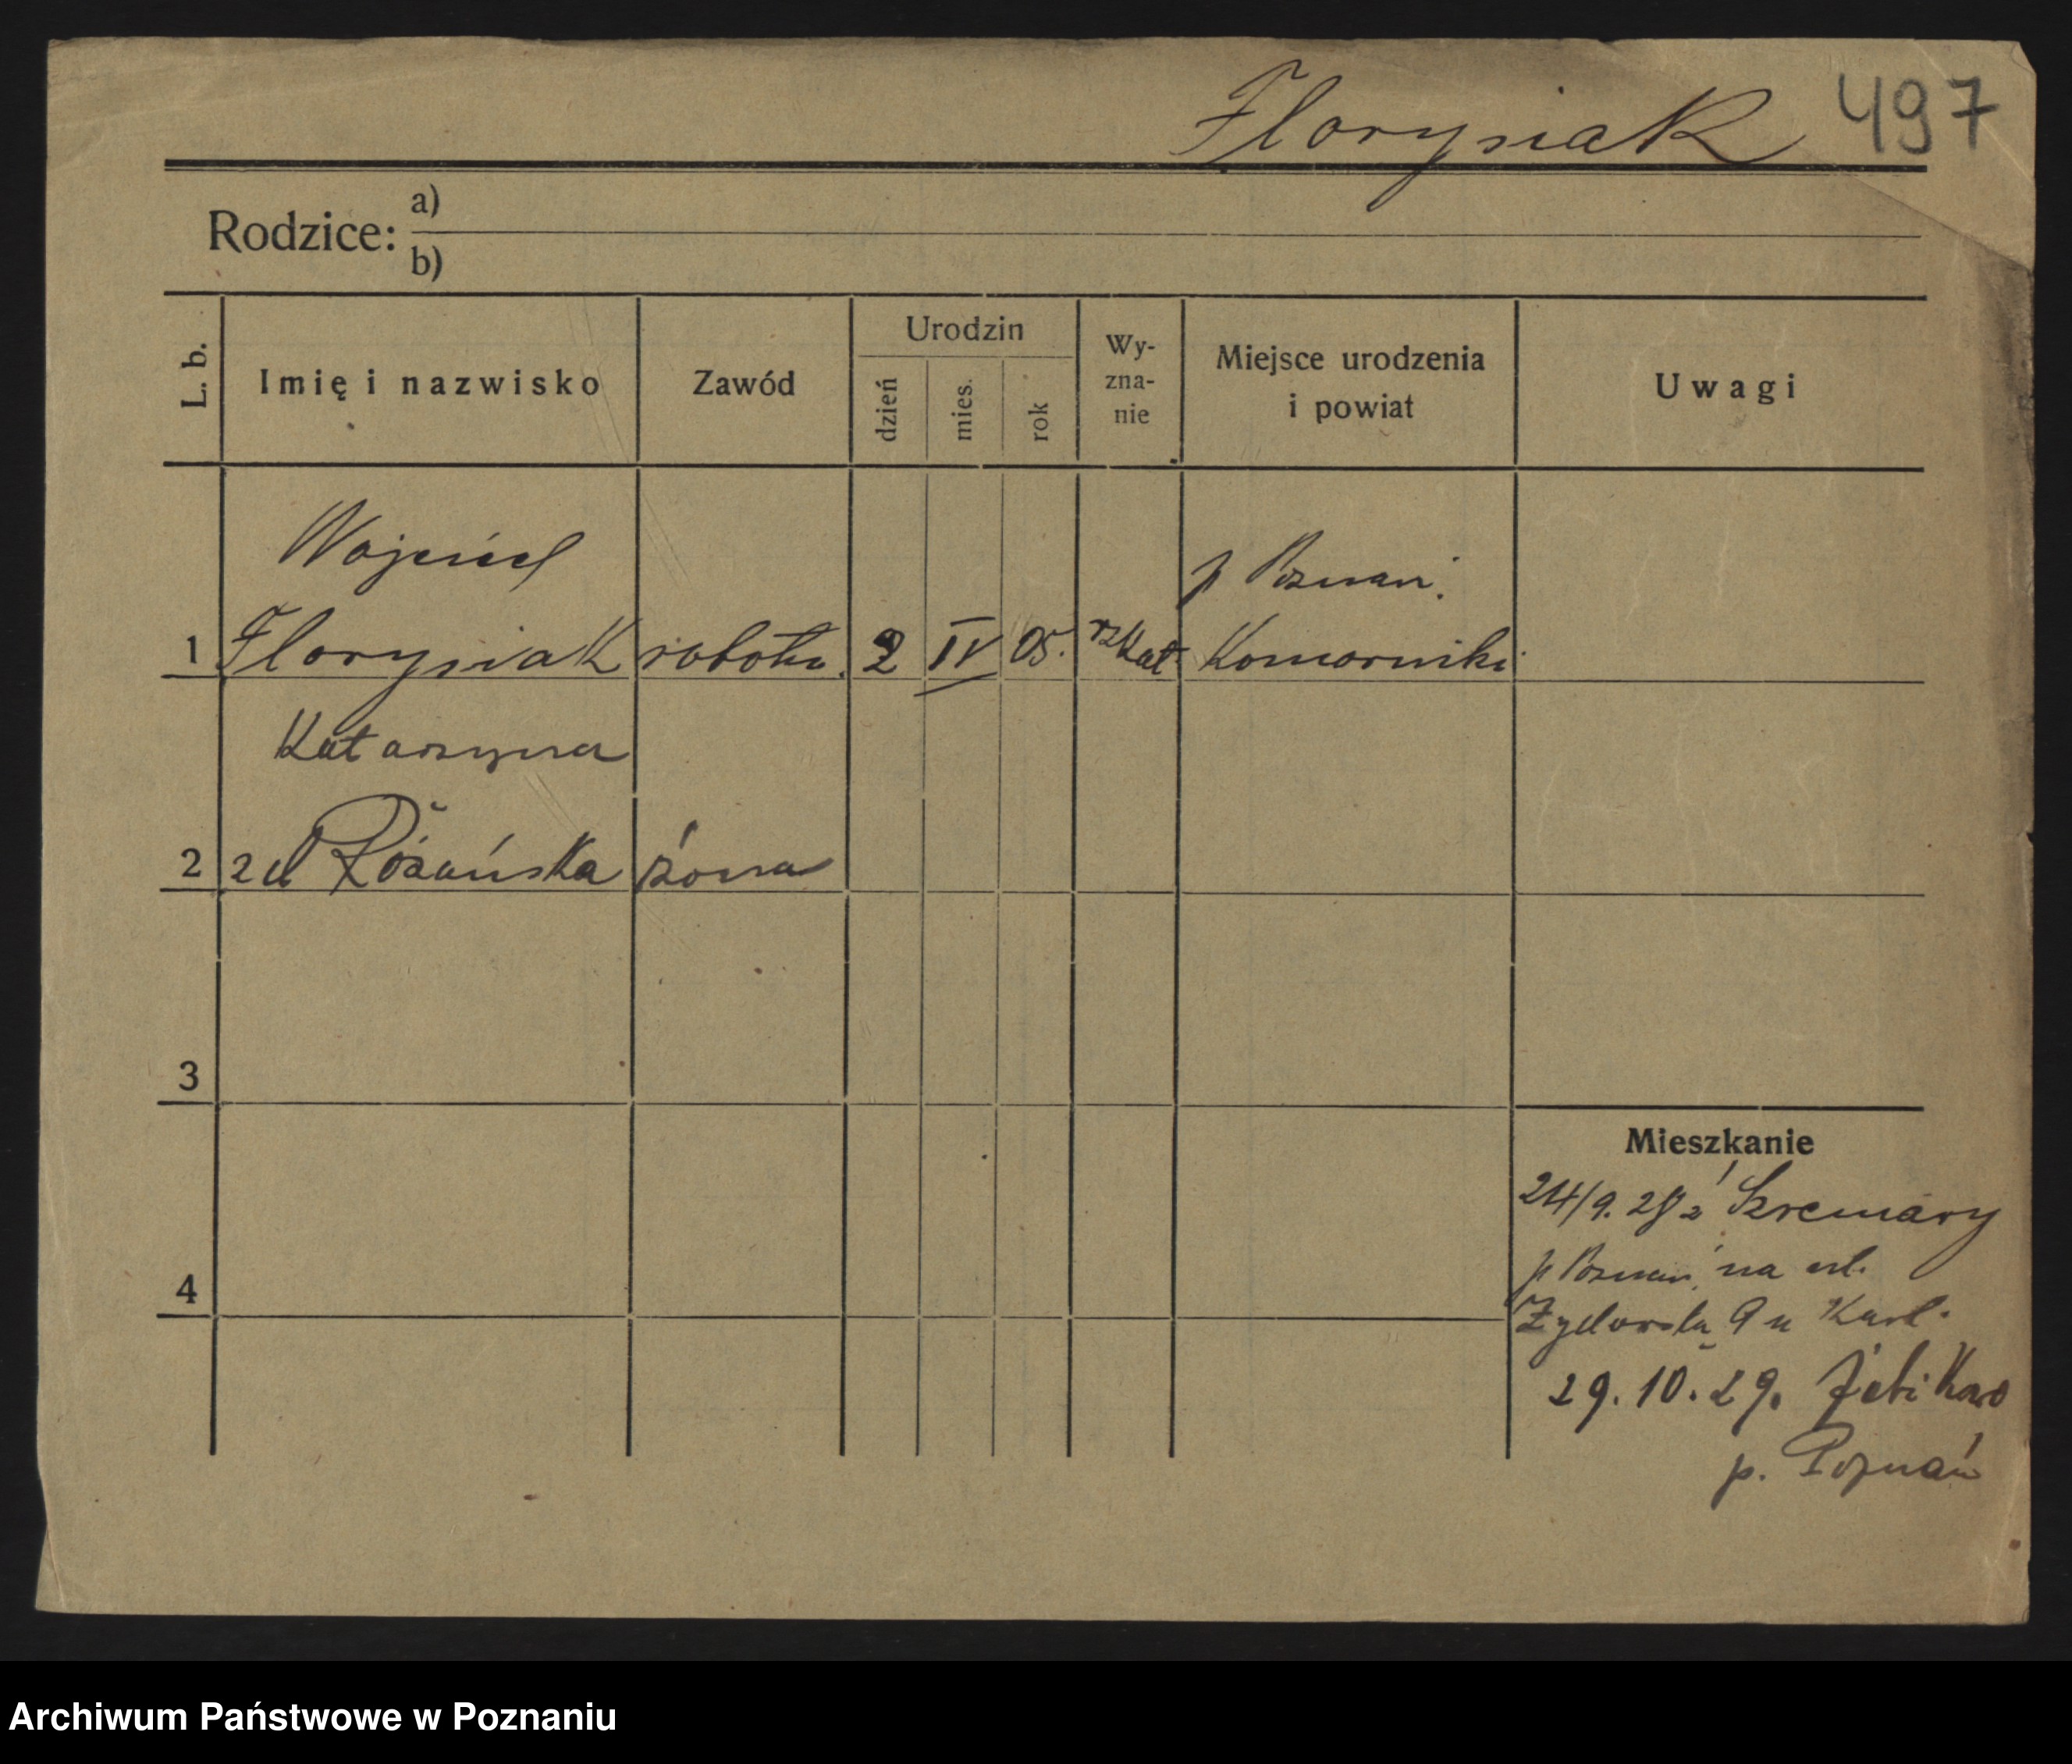 Florysiak 497
Rodzice: a)
b)
L. b.
Imię i nazwisko
Zawód
Urodzin
dzień
mies.
rok
Wy-
zna-
nie
Miejsce urodzenia
i powiat
Uwagi
Wojciech
p Poznań.
1 Florysiak robotn. 2 IV 05. rz Kat. Komorniki
Katarzyna
2 zd Różańska żona
3
Mieszkanie
24/9. 28 z
p Poznań, na ul.
4
Żydowską 9 u
29. 10. 29.
p. Poznań
Archiwum Państwowe w Poznaniu